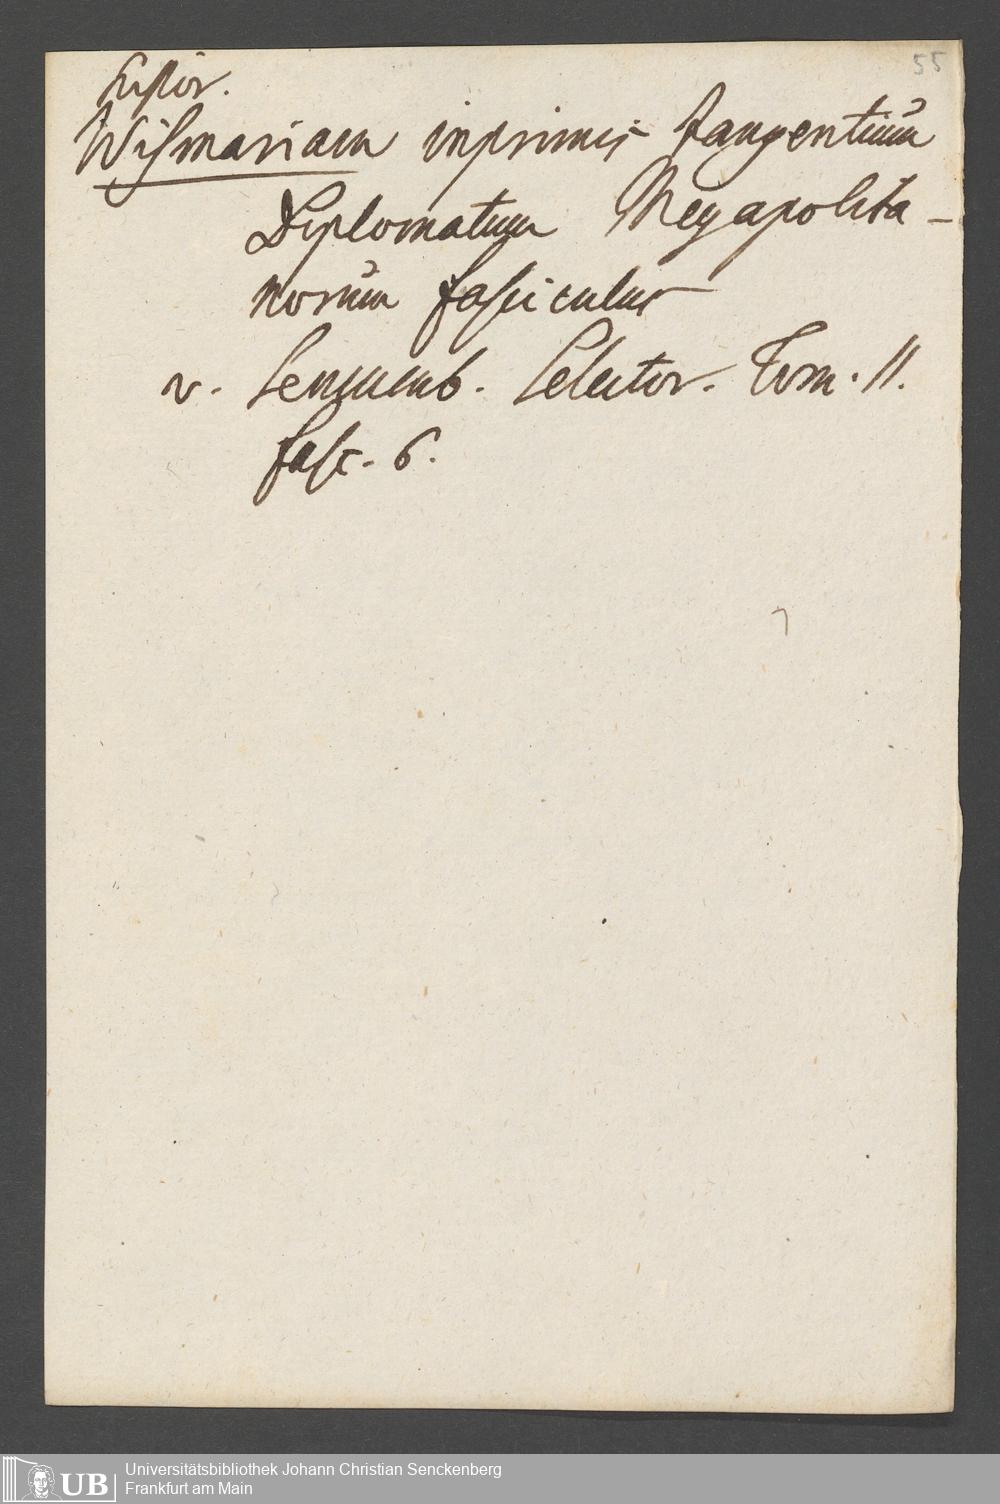 55
Histor.
Wismariam inprimis tangentium
Diplomatum Megapolita-
norum fasciculus
v. Senckenb. Selector. Tom. II.
fasc. 6.
UB Universitätsbibliothek Johann Christian Senckenberg
Frankfurt am Main